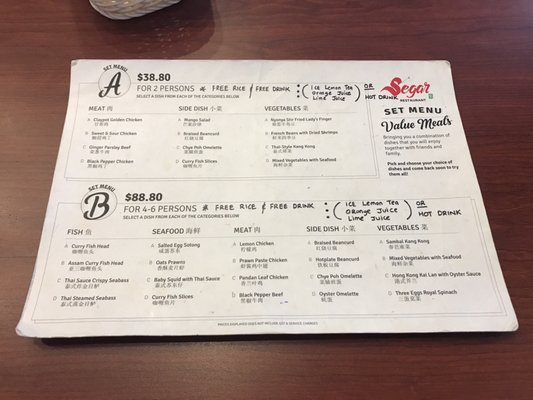 SET MENU
A
$38.80
FOR 2 PERSONS * FREE RICE & FREE DRINK : (Ice Lemon Tea
Orange Juice
Lime Juice) OR HOT DRINK
SELECT A DISH FROM EACH OF THE CATEGORIES BELOW
MEAT 肉
A Claypot Golden Chicken
B Sweet & Sour Chicken
C Ginger Parsley Beef
D Black Pepper Chicken
SIDE DISH 小菜
A Mango Salad
B Braised Beancurd
红烧豆腐
C Chye Poh Omelette
菜脯煎蛋
D Curry Fish Slices
咖喱鱼片
VEGETABLES 菜
A Nyonya Stir Fried Lady's Finger
B French Beans with Dried Shrimps
C Thai Style Kang Kong
D Mixed Vegetables with Seafood
海鲜杂菜
Segar
RESTAURANT
SET MENU
Value Meals
Bringing you a combination of
dishes that you will enjoy
together with friends and
family.
Pick and choose your choice of
dishes and come back soon to try
them all!
SET MENU
B
$88.80
FOR 4-6 PERSONS * FREE RICE & FREE DRINK : (Ice Lemon Tea
Orange Juice
Lime Juice) OR HOT DRINK
SELECT A DISH FROM EACH OF THE CATEGORIES BELOW
FISH 鱼
A Curry Fish Head
咖喱鱼头
B Assam Curry Fish Head
C Thai Sauce Crispy Seabass
D Thai Steamed Seabass
SEAFOOD 海鲜
A Salted Egg Sotong
咸蛋苏东
B Oats Prawns
C Baby Squid with Thai Sauce
D Curry Fish Slices
咖喱鱼片
MEAT 肉
A Lemon Chicken
柠檬鸡
B Prawn Paste Chicken
C Pandan Leaf Chicken
香兰叶鸡
D Black Pepper Beef
黑椒牛肉
SIDE DISH 小菜
A Braised Beancurd
红烧豆腐
B Hotplate Beancurd
铁板豆腐
C Chye Poh Omelette
菜脯煎蛋
D Oyster Omelette
蚝蛋
VEGETABLES 菜
A Sambal Kang Kong
B Mixed Vegetables with Seafood
海鲜杂菜
C Hong Kong Kai Lan with Oyster Sauce
港式芥兰
D Three Eggs Royal Spinach
三蛋苋菜
PRICES DISPLAYED DOES NOT INCLUDE GST & SERVICE CHARGES